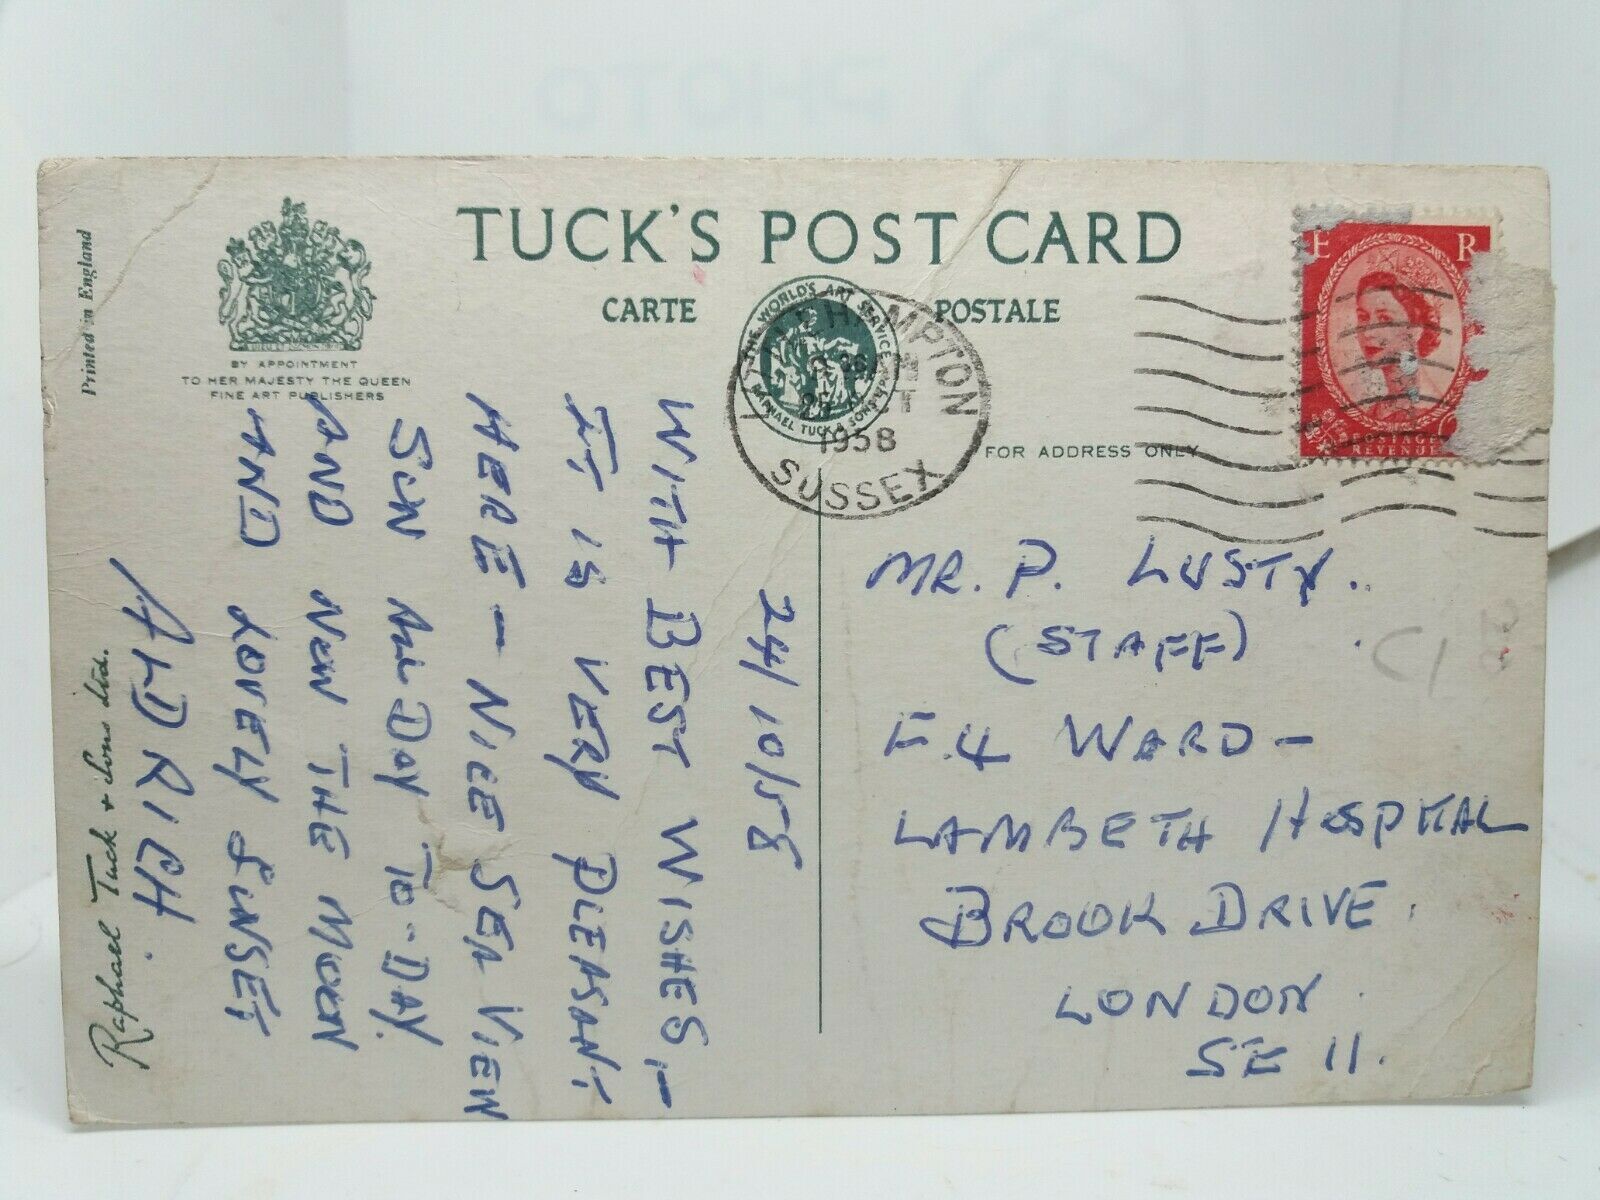 TUCK'S POST CARD
CARTE POSTALE
Printed in England
BY APPOINTMENT
TO HER MAJESTY THE QUEEN
FINE ART PUBLISHERS
THE WORLD'S ART SERVICE
RAPHAEL TUCK & SONS LTD
HAMPTON
1958
SUSSEX
E R
POSTAGE
REVENUE
FOR ADDRESS ONLY
24/10/58
WITH BEST WISHES,—
IT IS VERY PLEASANT
HERE — NICE SEA VIEW
SUN ALL DAY TO-DAY.
AND NOW THE MOON
AND LOVELY SUNSET
ALDRICH.
Raphael Tuck & Sons Ltd.
MR. P. LUSTY.
(STAFF)
F.4 WARD —
LAMBETH HOSPITAL
BROOK DRIVE.
LONDON.
SE 11.